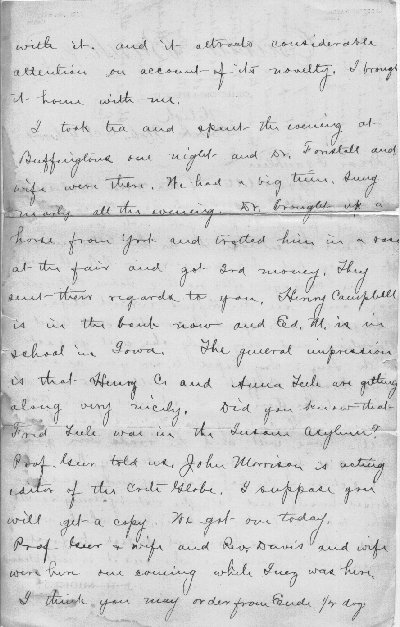 with it. and it attracts considerable
attention on account of its novelty. I brought
it home with me.
I took tea and spent the evening at
Buffingtons one night and Dr. Forstall and
wife were there. We had a big time. Sung
nearly all the evening. Dr. brought up a
horse from York and trotted him in a race
at the fair and got 2nd money. They
sent their regards to you. Henry Campbell
is in the bank now and Ed. M. is in
school in Iowa. The general impression
is that Henry C. and Anna are getting
along very nicely. Did you know that
Fred was in the Insane Asylum?
Prof. told us. John Morrison is acting
editor of the Globe. I suppose you
will get a copy. We got one today.
Prof. & wife and Rev. Davis and wife
were here one evening while Inez was here.
I think you may order from 1/2 doz